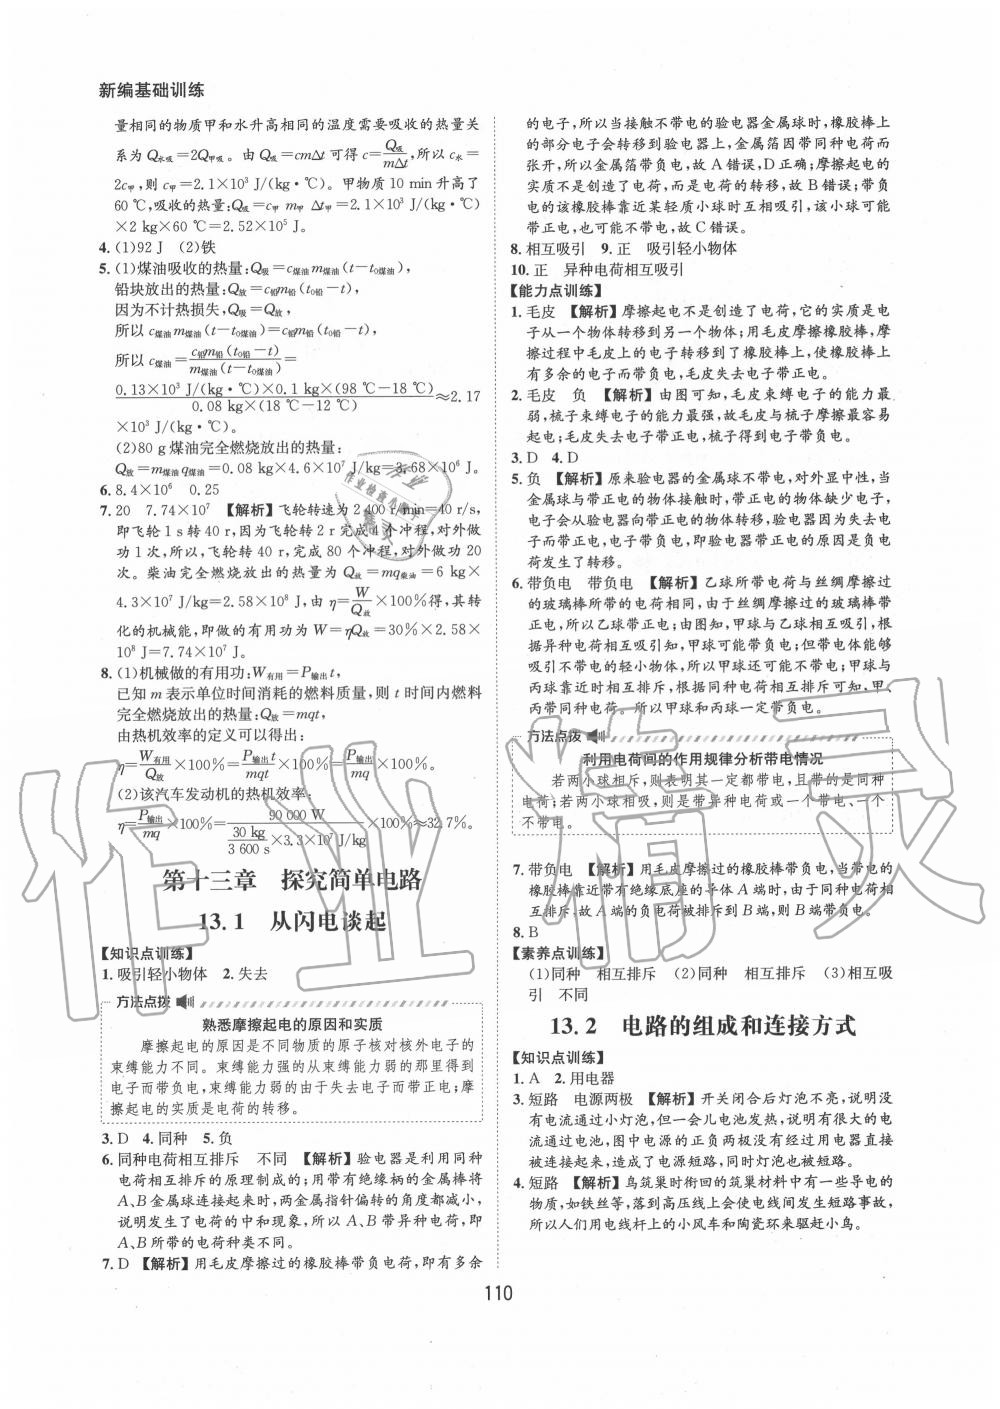 新编基础训练
量相同的物质甲和水升高相同的温度需要吸收的热量关
系为Q水吸=2Q甲吸。由Q吸=cmΔt可得c=Q吸/(mΔt),所以c水=
2c甲,则c甲=2.1×10³ J/(kg·℃)。甲物质10 min升高了
60 ℃,吸收的热量:Q吸=c甲 m甲 Δt甲=2.1×10³ J/(kg·℃)
×2 kg×60 ℃=2.52×10⁵ J。
4. (1)92 J (2)铁
5. (1)煤油吸收的热量:Q吸=c煤油m煤油(t-t0煤油),
铅块放出的热量:Q放=c铅m铅(t0铅-t),
因为不计热损失,Q吸=Q放,
所以c煤油m煤油(t-t0煤油)=c铅m铅(t0铅-t),
所以c煤油=c铅m铅(t0铅-t)/m煤油(t-t0煤油)=
0.13×10³ J/(kg·℃)×0.1 kg×(98 ℃-18 ℃)/0.08 kg×(18 ℃-12 ℃)≈2.17
×10³ J/(kg·℃)。
(2)80 g煤油完全燃烧放出的热量:
Q放=m煤油q煤油=0.08 kg×4.6×10⁷ J/kg=3.68×10⁶ J。
6. 8.4×10⁶ 0.25
7. 20 7.74×10⁷ 【解析】飞轮转速为2 400 r/min=40 r/s,
即飞轮1 s转40 r,因为飞轮转2 r完成4个冲程,对外做
功1次,所以,飞轮转40 r,完成80个冲程,对外做功20
次。柴油完全燃烧放出的热量为Q放=mq柴油=6 kg×
4.3×10⁷ J/kg=2.58×10⁸ J,由η=W/Q放×100%得,其转
化的机械能,即做的有用功为W=ηQ放=30%×2.58×
10⁸ J=7.74×10⁷ J。
8. (1)机械做的有用功:W有用=P输出t,
已知m表示单位时间消耗的燃料质量,则t时间内燃料
完全燃烧放出的热量:Q放=mqt,
由热机效率的定义可以得出:
η=W有用/Q放×100%=P输出t/mqt×100%=P输出/mq×100%。
(2)该汽车发动机的热机效率:
η=P输出/mq×100%=90 000 W/(30 kg/3 600 s×3.3×10⁷ J/kg)×100%≈32.7%。
第十三章 探究简单电路
13.1 从闪电谈起
【知识点训练】
1. 吸引轻小物体 2. 失去
方法点拨
熟悉摩擦起电的原因和实质
摩擦起电的原因是不同物质的原子核对核外电子的
束缚能力不同。束缚能力强的从束缚能力弱的那里得到
电子而带负电,束缚能力弱的由于失去电子而带正电;摩
擦起电的实质是电荷的转移。
3. D 4. 同种 5. 负
6. 同种电荷相互排斥 不同 【解析】验电器是利用同种
电荷相互排斥的原理制成的;用带有绝缘柄的金属棒将
A、B金属球连接起来时,两金属指针偏转的角度都减小,
说明发生了电荷的中和现象,所以A、B带异种电荷,即
A、B所带的电荷种类不同。
7. D 【解析】用毛皮摩擦过的橡胶棒带负电荷,即有多余
的电子,所以当接触不带电的验电器金属球时,橡胶棒上
的电子会转移到验电器上,金属箔因带同种电荷而
张开,所以金属箔带负电,故A错误,D正确;摩擦起电的
实质不是创造了电荷,而是电荷的转移,故B错误;带负
电的该橡胶棒靠近某轻质小球时互相吸引,该小球可能
带正电,也可能不带电,故C错误。
8. 相互吸引 9. 正 吸引轻小物体
10. 正 异种电荷相互吸引
【能力点训练】
1. 毛皮 【解析】摩擦起电不是创造了电荷,它的实质是电
子从一个物体转移到另一个物体;用毛皮摩擦橡胶棒,摩
擦过程中毛皮上的电子转移到了橡胶棒上,使橡胶棒上
有多余的电子而带负电,毛皮失去电子带正电。
2. 毛皮 负 【解析】由图可知,毛皮束缚电子的能力最
弱,梳子束缚电子的能力最强,故毛皮与梳子摩擦最容易
起电;毛皮失去电子带正电,梳子得到电子带负电。
3. D 4. D
5. 负 【解析】原来验电器的金属球不带电,对外显中性,当
金属球与带正电的物体接触时,带正电的物体缺少电子,
电子会从验电器向带正电的物体转移,验电器因为失去电
子而带正电,带正电荷,即验电器带正电的原因是负电
荷发生了转移。
6. 带负电 带负电 【解析】乙球所带电荷与丝绸摩擦过
的玻璃棒所带的电荷相同,由于丝绸摩擦过的玻璃棒带
正电,所以乙球带正电;由图知,甲球与乙球相互吸引,根
据异种电荷相互吸引知,甲球可能带负电;但带电体能够
吸引不带电的轻小物体,所以甲球还可能不带电;甲球与
丙球靠近时相互排斥,根据同种电荷相互排斥可知,甲、
丙带同种电荷。所以甲球和丙球一定带负电。
方法点拨
利用电荷间的作用规律分析带电情况
若两小球相斥,则表明其一定都带电,且带的是同种
电荷;若两小球相吸,则是带异种电荷或一个带电、一个
不带电。
7. 带负电 【解析】用毛皮摩擦过的橡胶棒带负电,当带电的
橡胶棒靠近带有绝缘底座的导体A端时,由于同种电荷相
互排斥,故A端的负电荷被排斥到B端,故B端带负电。
8. B
【素养点训练】
(1)同种 相互排斥 (2)同种 相互排斥 (3)相互吸
引 不同
13.2 电路的组成和连接方式
【知识点训练】
1. A 2. 用电器
3. 短路 电源两极 【解析】开关闭合后灯泡不亮,说明没
有电流通过小灯泡,但一会儿电池发热,说明有很大的电
流通过电池,图中电源的正负两极没经过用电器直接
被连接起来,造成了电源短路,同时灯泡也被短路。
4. 短路 【解析】鸟筑巢时衔回的筑巢材料中有一些导电的
物质,如铁丝等,落到高压线上会使电线间发生短路事故,
所以人们用电线杆上的小风车和陶瓷环来驱赶小鸟。
110
作业精灵